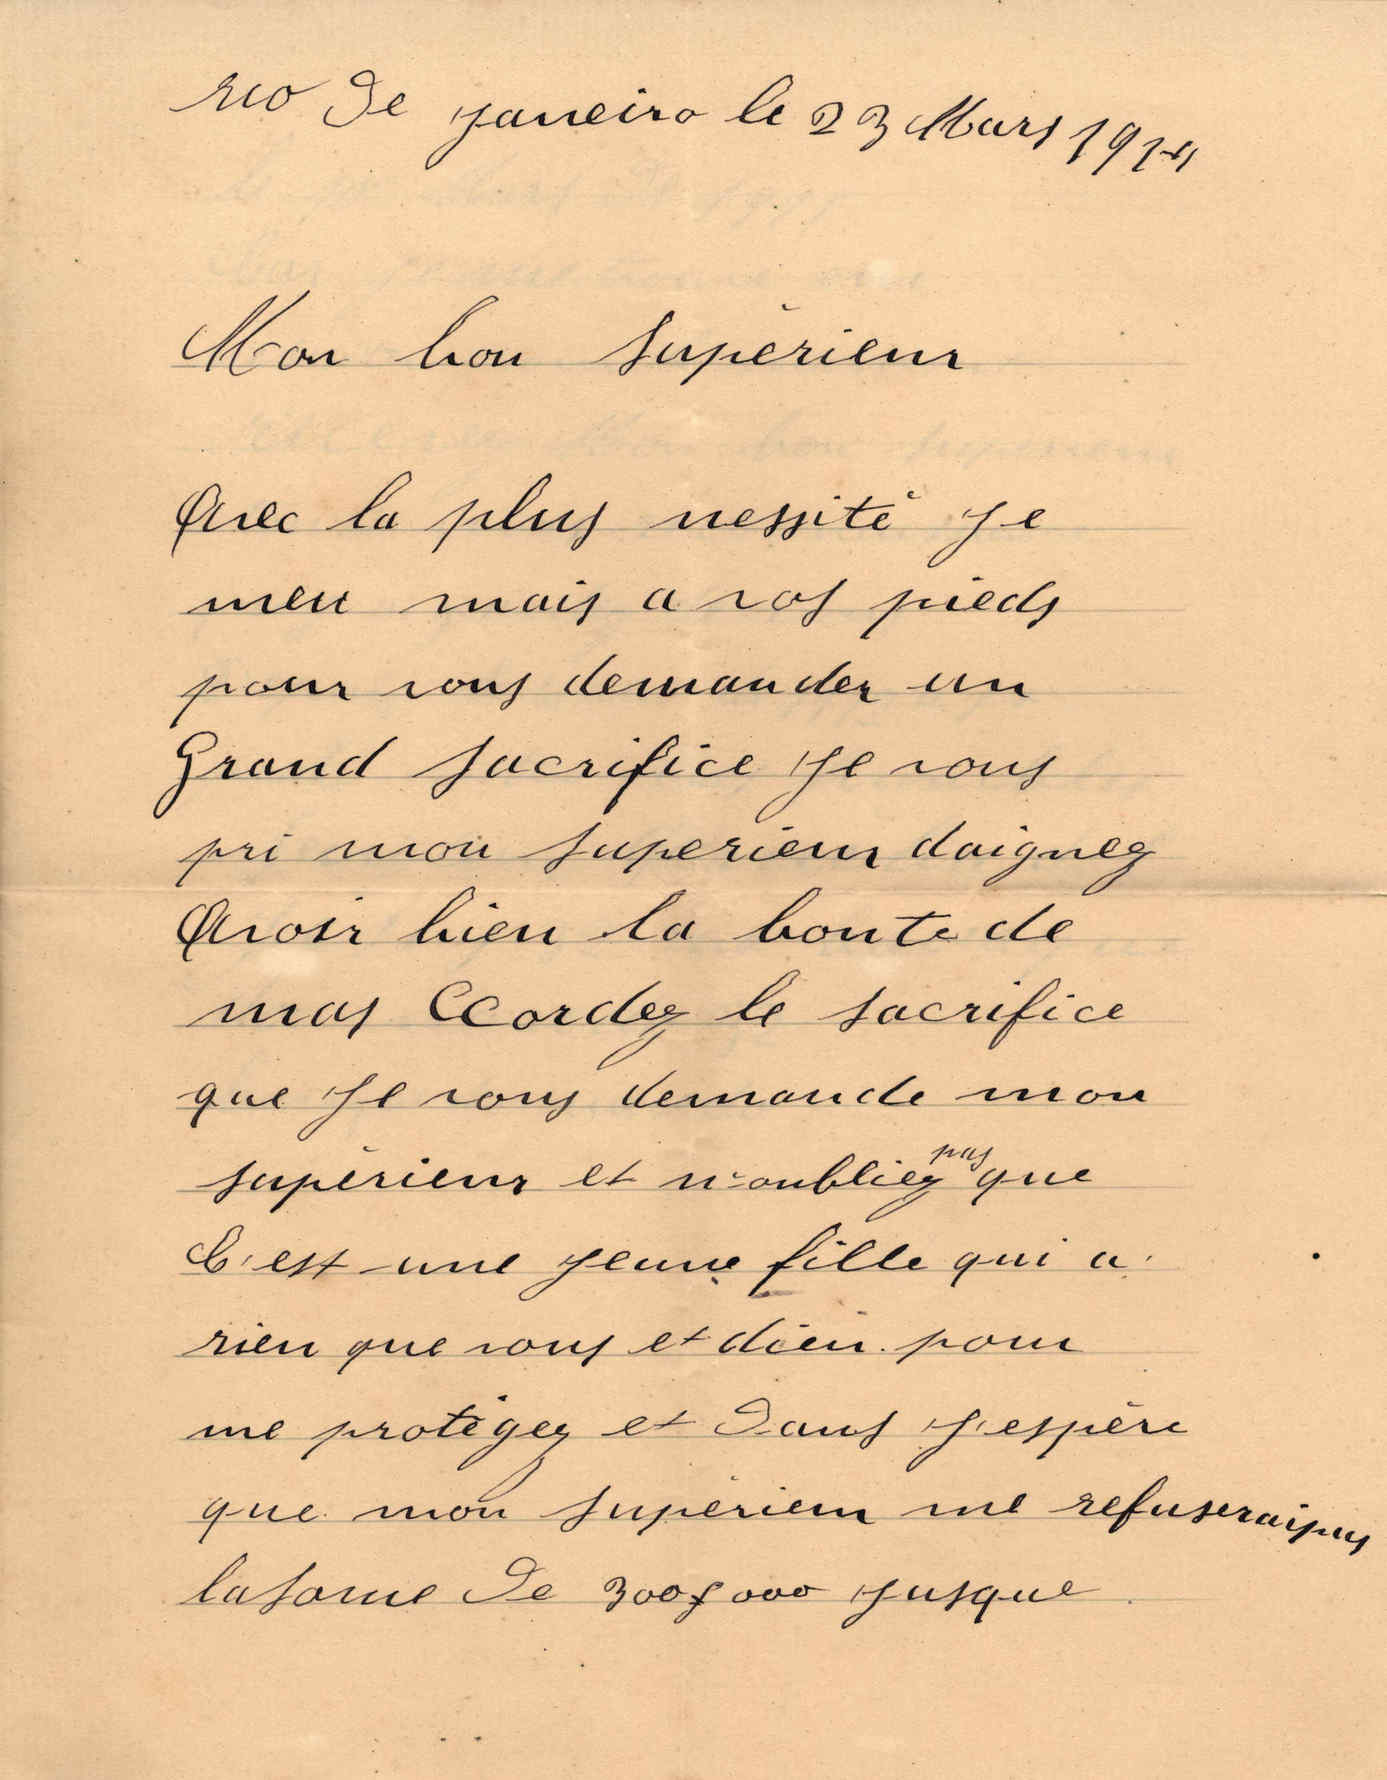 rio de janeiro le 23 Mars 1914
Mon bon supérieur
Avec la plus nessité je
meu mais a vos pieds
pour vous demander un
Grand sacrifice je vous
pri mon superieur daignez
Avoir bien la bonte de
mas Ccordez le sacrifice
que je vous demande mon
supérieur et n'oubliez pas que
C'est une jeune fille qui a
rien que vous et dieu pour
me protégez et Dans j'espère
que mon supérieur me refuserais pas
la some de 300$000 jusque